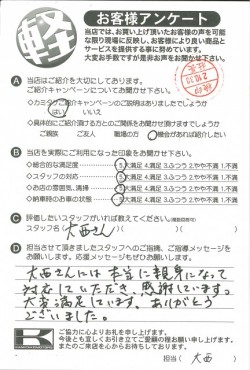 軽
お客様アンケート
当店では、お買い上げ頂いたお客様の声を可能
な限り現場に反映し、お客様により良い商品と
サービスを提供する事に努めています。
大変お手数ですが是非お声をお聞かせ下さい。
A 当店はご紹介を大切にしております。
ご紹介キャンペーンについてお聞かせ下さい。
◇カミタケご紹介キャンペーンのご説明はありましたでしょうか
はい いいえ
◇具体的にご紹介頂ける方とのご関係をお聞かせ頂けますでしょうか
ご親族 ご友人 職場の方 機会があれば紹介したい
B 当店を実際にご利用になった印象をお聞かせ下さい。
◇総合的な満足度 5.大満足 4.満足 3.ふつう 2.やや不満 1.不満
◇スタッフの対応 5.大満足 4.満足 3.ふつう 2.やや不満 1.不満
◇お店の雰囲気、清掃 5.大満足 4.満足 3.ふつう 2.やや不満 1.不満
◇納車時のお車の状態 5.大満足 4.満足 3.ふつう 2.やや不満 1.不満
C 評価したいスタッフがいれば教えてください。
スタッフ名( 大西さん )
D 担当させて頂きましたスタッフへのご指摘、ご指導メッセージを
お願いします。応援メッセージもぜひお願いします!
大西さんには本当に親身になって
対応していただき、感謝しています。
大変満足しています。ありがとう
ございました。
K
ご協力に心よりお礼を申し上げます。
今後とも宜しくお引き立てご愛顧の程お願い申し上げます。
またのご来店を心からお待ちしております。
担当( 大西 )